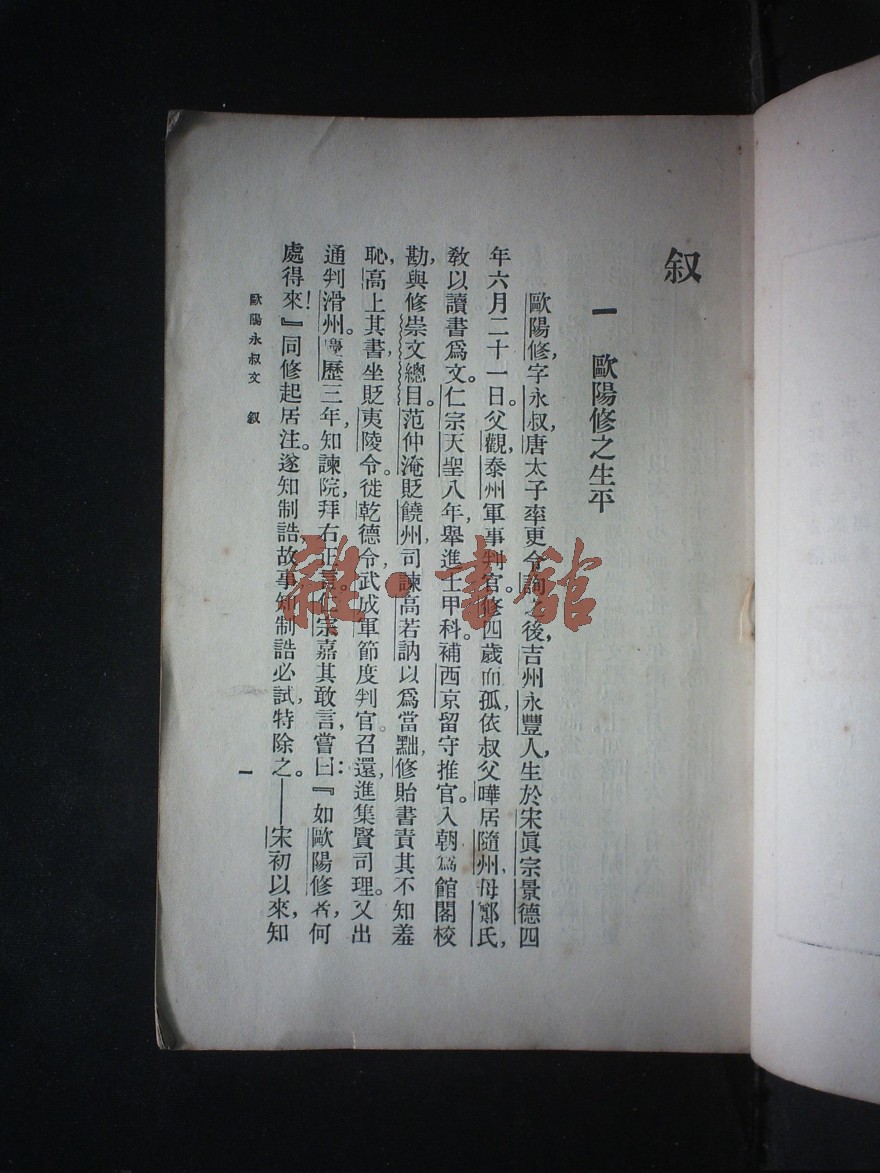 叙
一 歐陽修之生平
歐陽修，字永叔，唐太子率更令詢之後，吉州永豐人，生於宋眞宗景德四
年六月二十一日。父觀，泰州軍事判官。修四歲而孤，依叔父曄居隨州，母鄭氏，
敎以讀書爲文。仁宗天聖八年，舉進士甲科。補西京留守推官。入朝爲館閣校
勘，與修崇文總目。范仲淹貶饒州，司諫高若訥以爲當黜，修貽書責其不知羞
恥，高上其書，坐貶夷陵令。徙乾德令，武成軍節度判官。召還，進集賢司理。又出
通判滑州。慶歷三年，知諫院，拜右正言。仁宗嘉其敢言，嘗曰：『如歐陽修者，何
處得來！』同修起居注。遂知制誥。故事，知制誥必試，特除之。——宋初以來，知
歐陽永叔文 叙
一
雜·書館